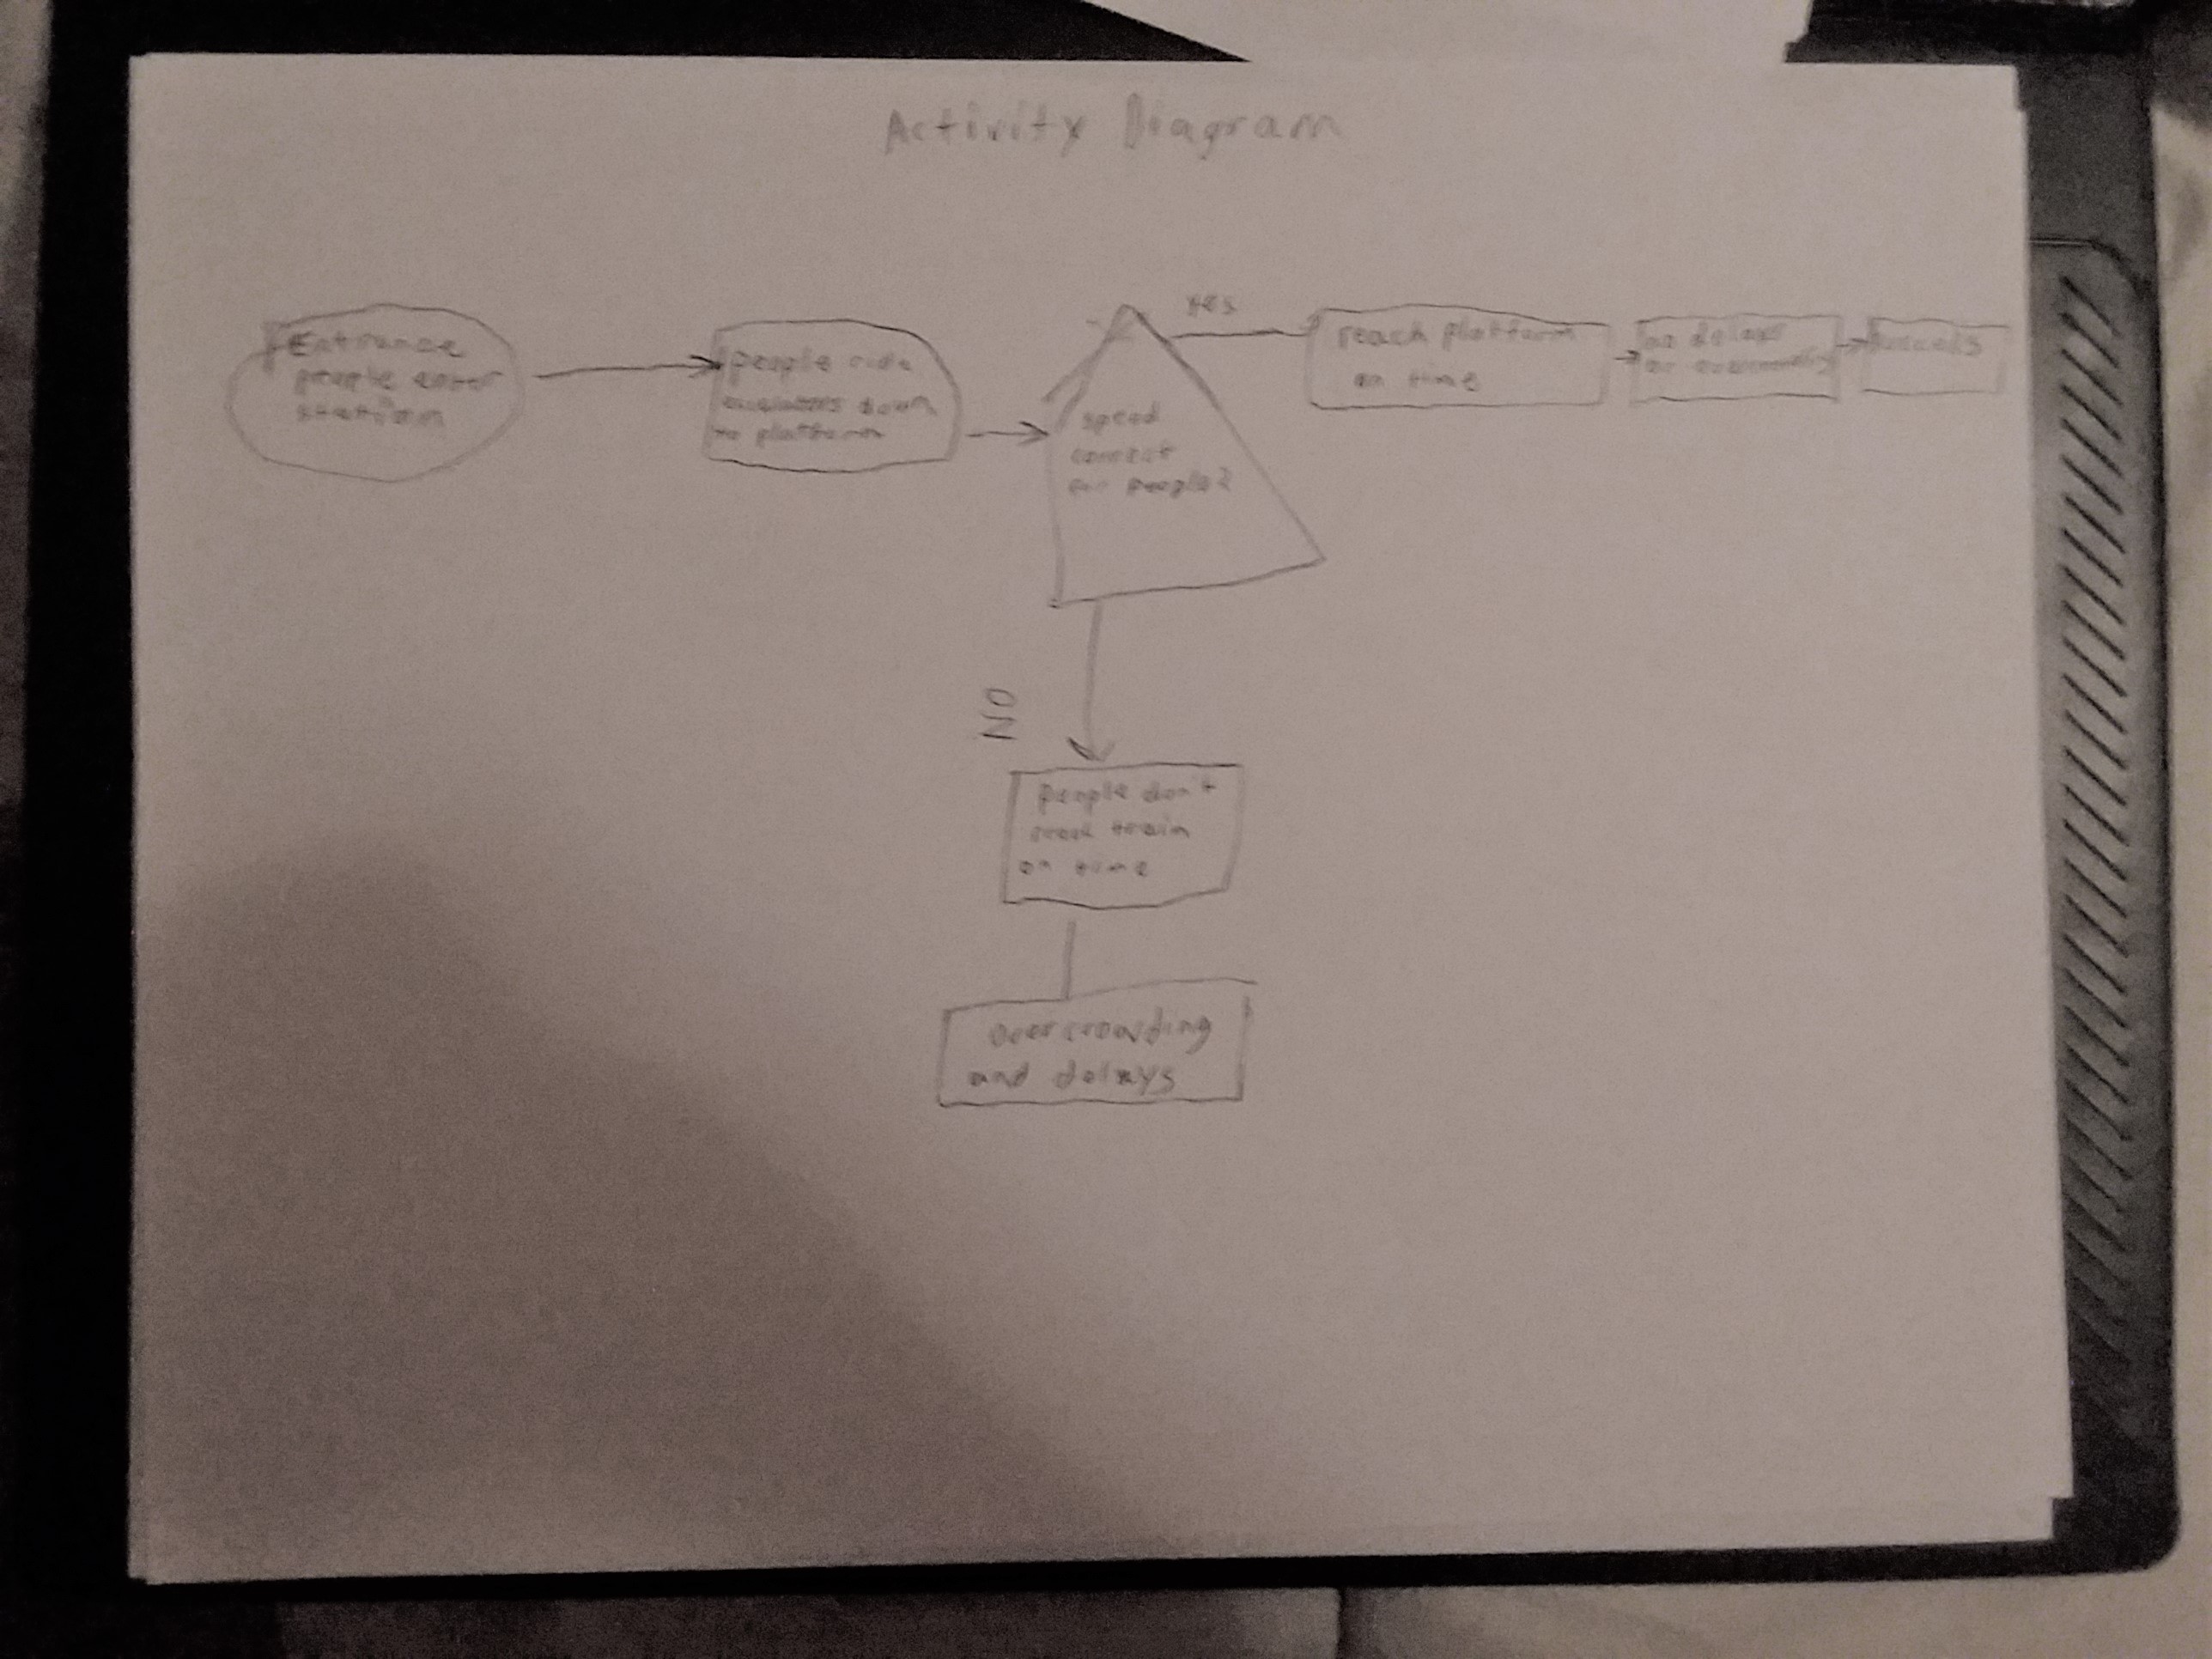 Activity Diagram
Entrance
people enter
station
people ride
escalators down
to platform
speed
correct
for people?
yes
reach platform
on time
no delays
or overcrowding
NO
people don't
reach train
on time
overcrowding
and delays